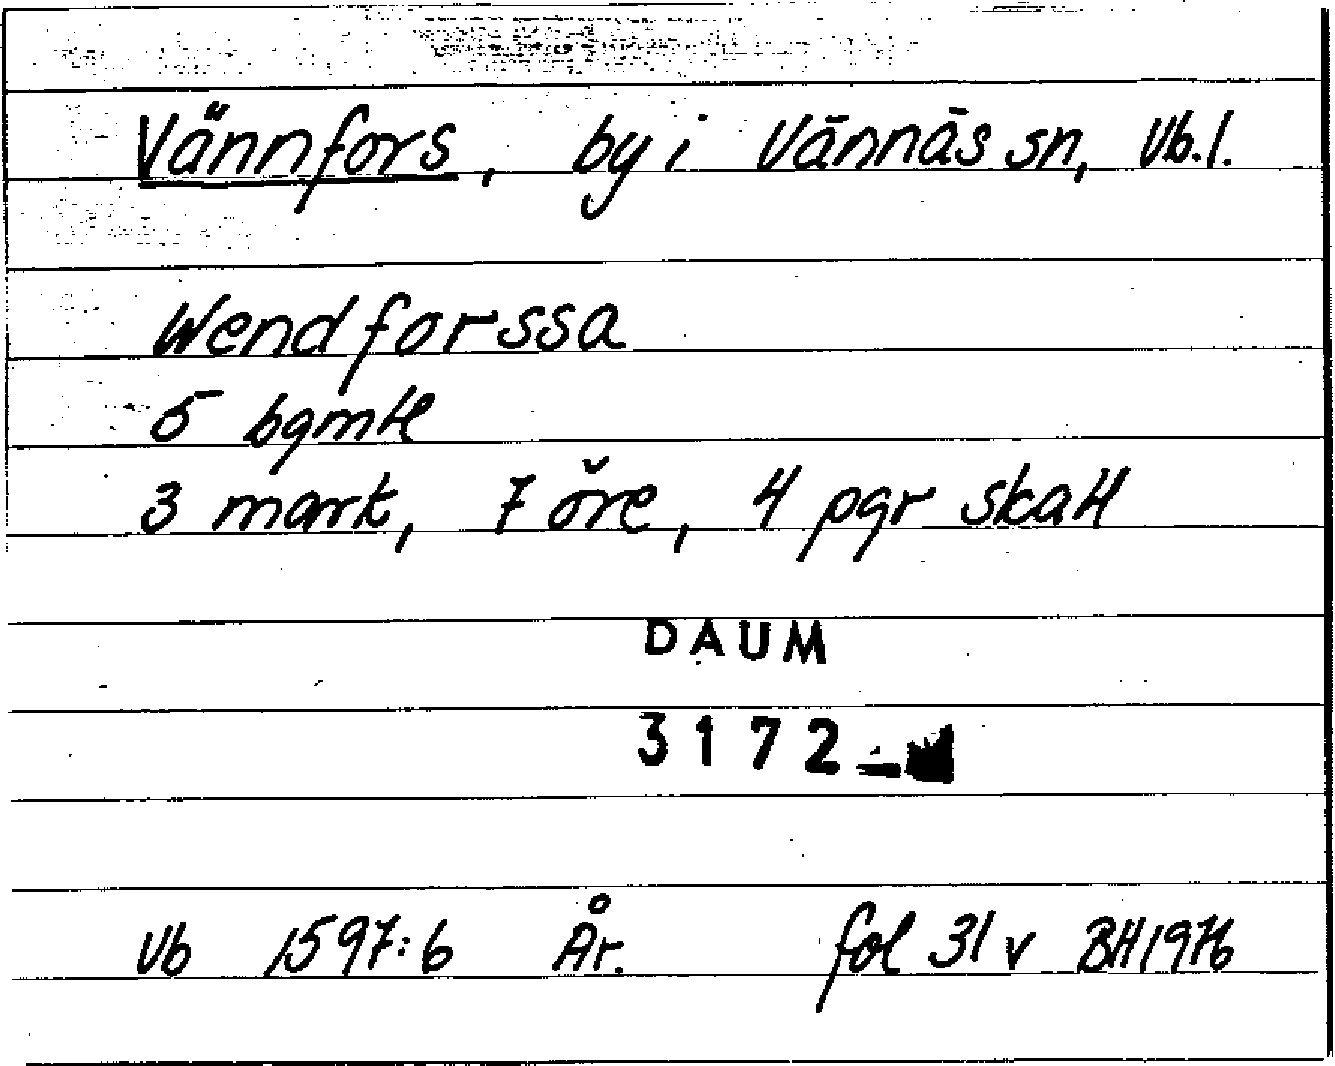 Vännfors, by i Vännäs sn, Vb.l.
Wendforssa
5 bgmtl
3 mark, 7 öre, 4 pgr skatt
DAUM
3172
Vb 1597:6 År. fol 31 v BH1976